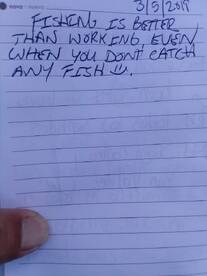 3/5/2019
FISHING IS BETTER
THAN WORKING, EVEN
WHEN YOU DONT CATCH
ANY FISH